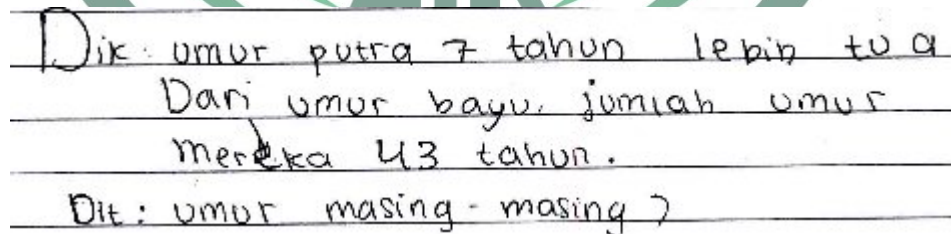 Dik: umur putra 7 tahun lebih tua
Dari umur bayu. jumlah umur
mereka 43 tahun.
Dit: umur masing-masing?